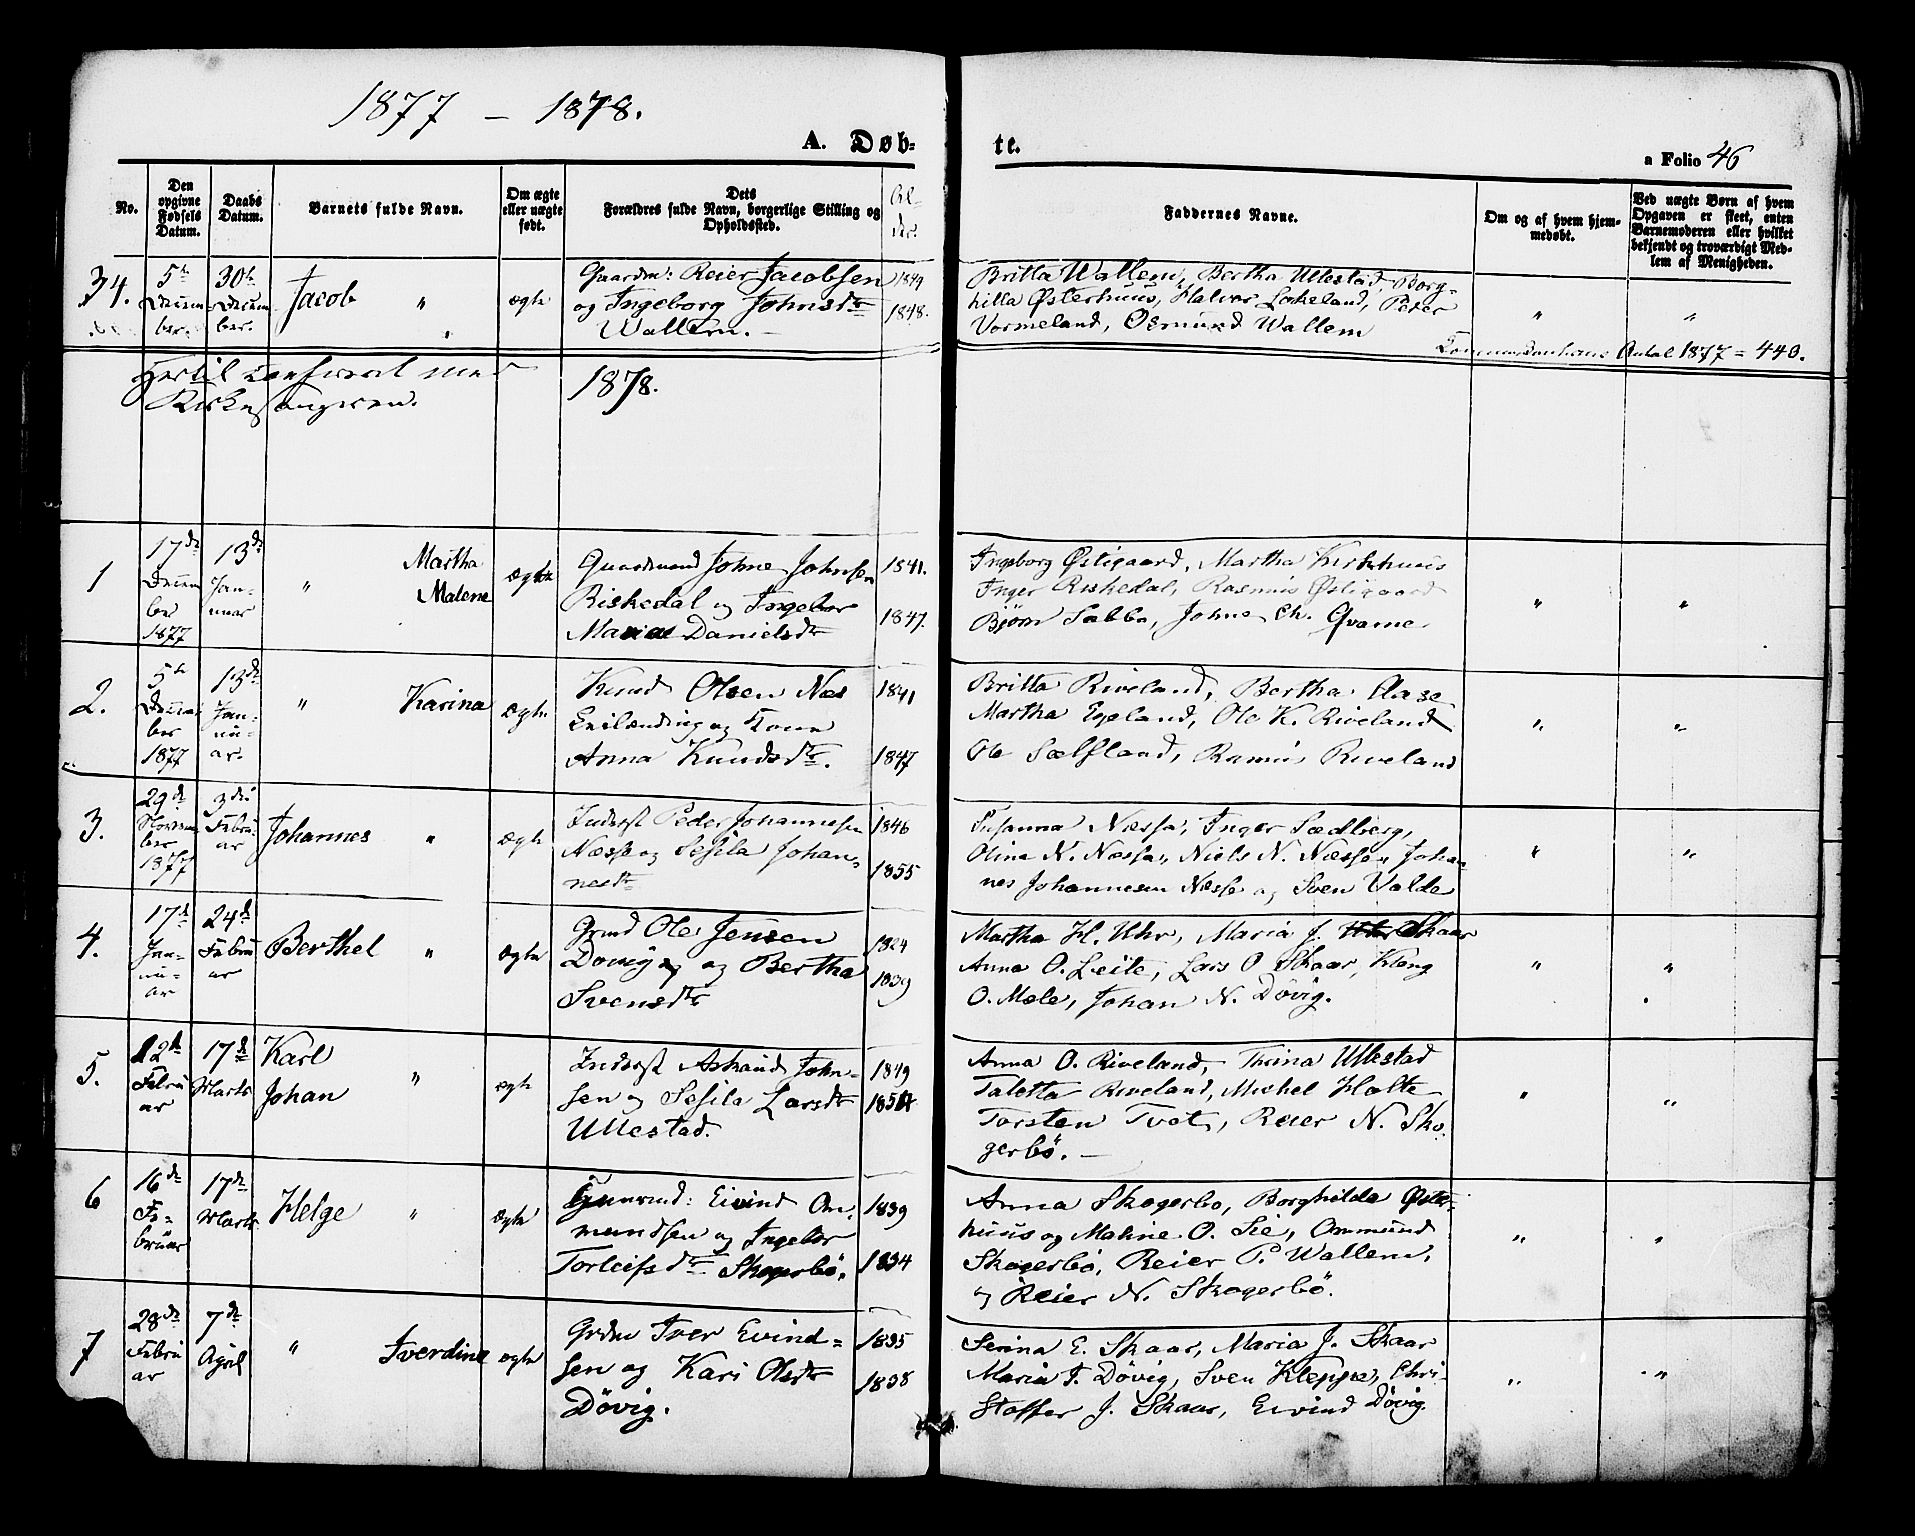 1877 – 1878.
A. Døb-
te.
a Folio 46
No.
Den
opgivne
Fødsels
Datum.
Daabs
Datum.
Barnets fulde Navn.
Om ægte
eller uægte
født.
Dets
Forældres fulde Navn, borgerlige Stilling og
Opholdssted.
Al-
der.
Faddernes Navne.
Om og af hvem hjem-
medøbt.
Ved uægte Børn af hvem
Opgaven er skeet, enten
Barnemoderen eller hvilket
bekjendt og troværdigt Med-
lem af Menigheden.
34.
5te
Decem
ber.
30te
Decem
ber.
Jacob "
ægte
Gaardm: Reier Jacobsen
og Ingeborg Johnsdtr
Wallem. –
1849
1848.
Britta Wallem, Bertha Ullestad, Borg-
hilla Østerhuus, Halvor Lakeland, Peder
Vormeland, Osmund Wallem
" "
Antal 1877 = 440.
Hertil confereret med
Kirkesangeren.
1878.
1
17de
Decem
ber
1877
13de
Jan-
nuar
" Martha
Malene
ægte
Gaardmand Johne Johnsen
Riskedal og Ingebor
Maria Danielsdtr
1841.
1847.
Ingeborg Østigaard, Martha Kirkhuus
Inger Riskedal, Rasmus Østigaard
Bjørn Sabbø, Johne Ch. Qvame
" "
2.
5te
Decem
ber
1877
13de
Jan-
nu-
ar.
" Karina
ægte
Knud Olsen Næs
og Kone
Anna Knudsdtr.
1841
1847
Britta Riveland, Bertha Aase
Martha Egeland, Ole K. Riveland
Ole Sælfland, Rasmus Riveland
" "
3.
29de
Novem
ber
1877
3die
Febru
ar
Johannes "
ægte
Inderst Peder Johannesen
Næsse og Sesila Johan-
nesdtr
1846
1855
Susanna Næsse, Inger Sædberg,
Olina N. Næssa, Niels N. Næsse, Johan
nes Johannesen Næsse og Sven Valde
" "
4.
17de
Jan-
nu-
ar
24de
Febru
ar
Berthel "
ægte
Grmd Ole Jensen
Døvig og Bertha
Svensdtr
1824
1839
Martha H. Uhr, Maria J. Skaar
Anna O. Leite, Lars O Skaar, Kleng
O. Mæle, Johan N. Døvig.
" "
5.
12te
Febru
ar
17de
Marts
Karl
Johan "
ægte
Inderst Askaud John-
sen og Sesila Larsdtr
Ullestad.
1849
Anna O. Riveland, Thrina Ullestad
Taletta Riveland, Michel Holte
Torsten Tvet, Reier N. Sko-
gerbö. –
" "
6
16de
Fe-
bruar
17de
Marts
Helge "
ægte
Eivind Om-
mundsen og Ingebor
Torleifsdtr Skogerbö.
1839
1834
Anna Skogerbo, Borghilda Øster-
huus og Maline O. Lie, Ommund
Skogerbö, Reier P. Wallem,
og Reier N. Skogerbö.
" "
7
28de
Febru
ar
7de
April
" Iverdine
ægte
Grdm Iver Eivind-
sen og Kari Olsdtr
Døvig.
1835
1838
Serina E. Skaar, Maria J. Skaar
Maria T. Døvig, Sven Kleppe, Chri-
stoffer J. Skaar, Eivind Døvig.
" "